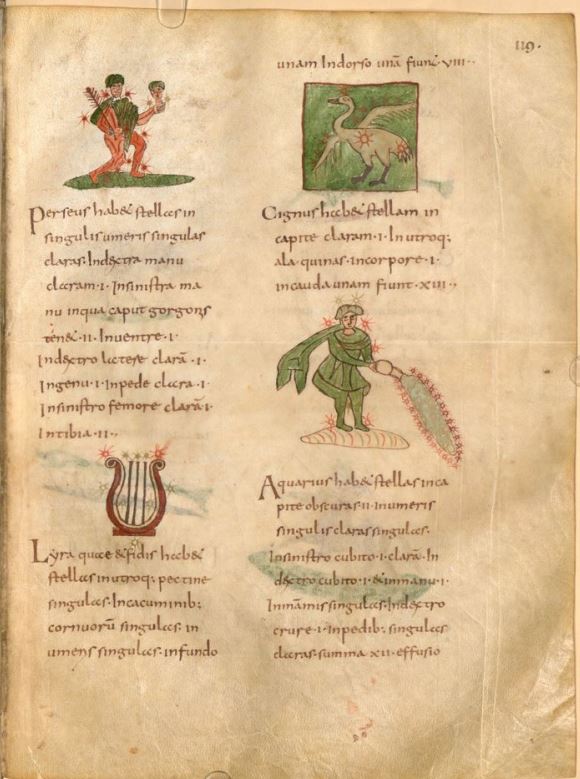 119.
Perseus habet stellas in
singulis umeris singulas
claras. Indextra manu
claram .i. Insinistra ma
nu inqua caput gorgons
tenet .ii. Inventre .i.
Indextro latere clarā .i.
Ingenu .i. Inpede clara .i.
Insinistro femore clarā .i.
Intibia .ii.
Lyra quae & fidis habet
stellas inutroq; pectine
singulas. Incacuminib;
cornuorū singulas. in
umeris singulas. infundo
unam Indorso unā fiunt viii.
Cignus habet stellam in
capite claram .i. Inutroq;
ala quinas. incorpore .i.
incauda unam fiunt .xiii.
Aquarius habet stellas inca
pite obscuras .ii. inumeris
singulis claras singulas.
Insinistro cubito .i. clarā. In
dextro cubito .i. & inmanu .i.
Inmāmis singulas. Indextro
crure .i. Inpedib; singulas
claras. summa xii. effusio